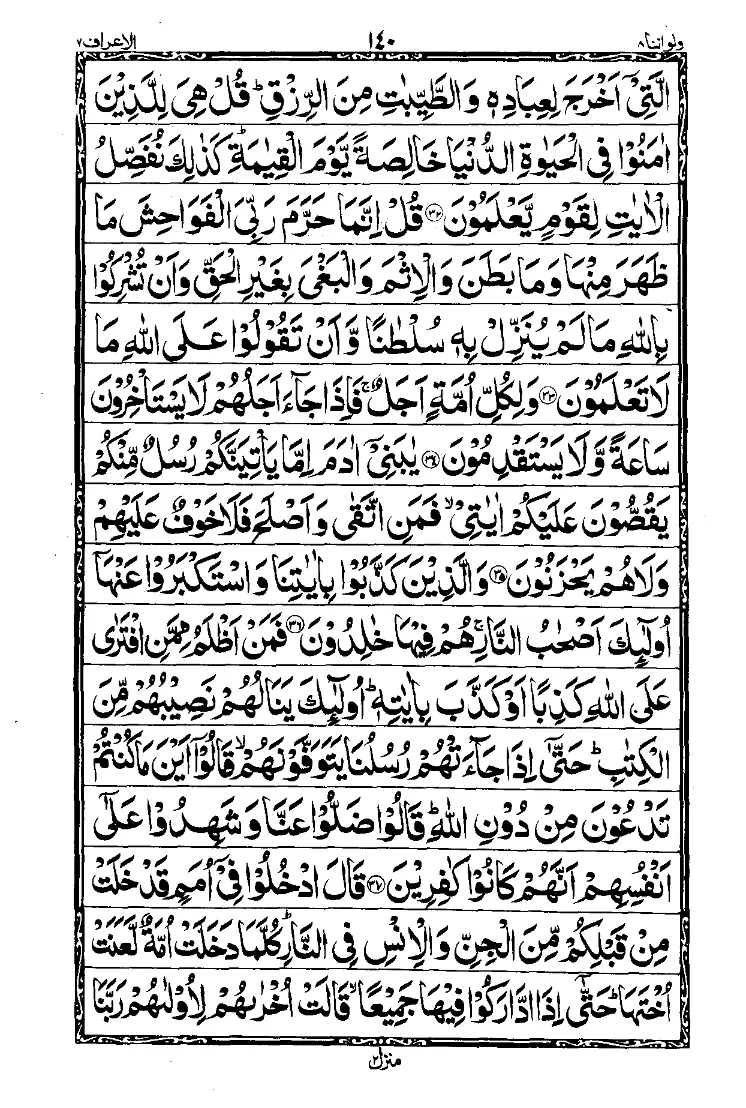 ولو اننا ٨ ١٤٠ الاعراف ٧
الَّتِیْۤ اَخْرَجَ لِعِبَادِهٖ وَالطَّیِّبٰتِ مِنَ الرِّزْقِ ؕ قُلْ هِیَ لِلَّذِیْنَ
اٰمَنُوْا فِی الْحَیٰوةِ الدُّنْیَا خَالِصَةً یَّوْمَ الْقِیٰمَةِ ؕ كَذٰلِكَ نُفَصِّلُ
الْاٰیٰتِ لِقَوْمٍ یَّعْلَمُوْنَ ۝۳۲ قُلْ اِنَّمَا حَرَّمَ رَبِّیَ الْفَوَاحِشَ مَا
ظَهَرَ مِنْهَا وَمَا بَطَنَ وَالْاِثْمَ وَالْبَغْیَ بِغَیْرِ الْحَقِّ وَاَنْ تُشْرِكُوْا
بِاللّٰهِ مَا لَمْ یُنَزِّلْ بِهٖ سُلْطٰنًا وَّاَنْ تَقُوْلُوْا عَلَی اللّٰهِ مَا
لَا تَعْلَمُوْنَ ۝۳۳ وَلِكُلِّ اُمَّةٍ اَجَلٌ ۚ فَاِذَا جَآءَ اَجَلُهُمْ لَا یَسْتَاْخِرُوْنَ
سَاعَةً وَّلَا یَسْتَقْدِمُوْنَ ۝۳۴ یٰبَنِیْۤ اٰدَمَ اِمَّا یَاْتِیَنَّكُمْ رُسُلٌ مِّنْكُمْ
یَقُصُّوْنَ عَلَیْكُمْ اٰیٰتِیْ ۙ فَمَنِ اتَّقٰی وَاَصْلَحَ فَلَا خَوْفٌ عَلَیْهِمْ
وَلَا هُمْ یَحْزَنُوْنَ ۝۳۵ وَالَّذِیْنَ كَذَّبُوْا بِاٰیٰتِنَا وَاسْتَكْبَرُوْا عَنْهَاۤ
اُولٰٓىِٕكَ اَصْحٰبُ النَّارِ ۚ هُمْ فِیْهَا خٰلِدُوْنَ ۝۳۶ فَمَنْ اَظْلَمُ مِمَّنِ افْتَرٰی
عَلَی اللّٰهِ كَذِبًا اَوْ كَذَّبَ بِاٰیٰتِهٖ ؕ اُولٰٓىِٕكَ یَنَالُهُمْ نَصِیْبُهُمْ مِّنَ
الْكِتٰبِ ؕ حَتّٰۤی اِذَا جَآءَتْهُمْ رُسُلُنَا یَتَوَفَّوْنَهُمْ ۙ قَالُوْۤا اَیْنَ مَا كُنْتُمْ
تَدْعُوْنَ مِنْ دُوْنِ اللّٰهِ ؕ قَالُوْا ضَلُّوْا عَنَّا وَشَهِدُوْا عَلٰۤی
اَنْفُسِهِمْ اَنَّهُمْ كَانُوْا كٰفِرِیْنَ ۝۳۷ قَالَ ادْخُلُوْا فِیْۤ اُمَمٍ قَدْ خَلَتْ
مِنْ قَبْلِكُمْ مِّنَ الْجِنِّ وَالْاِنْسِ فِی النَّارِ ؕ كُلَّمَا دَخَلَتْ اُمَّةٌ لَّعَنَتْ
اُخْتَهَا ؕ حَتّٰۤی اِذَا ادَّارَكُوْا فِیْهَا جَمِیْعًا ۙ قَالَتْ اُخْرٰىهُمْ لِاُوْلٰىهُمْ رَبَّنَا
منزل ٢